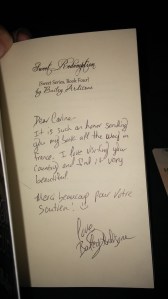 Sweet Redemption
(Sweet Series, Book Four)
by Bailey Ardisone
Dear Carine,
It is such an honor sending
you my book all the way in
France. I love visiting your
country and find it very
beautiful.
Merci beaucoup pour votre
Soutien!
Love,
Bailey Ardisone